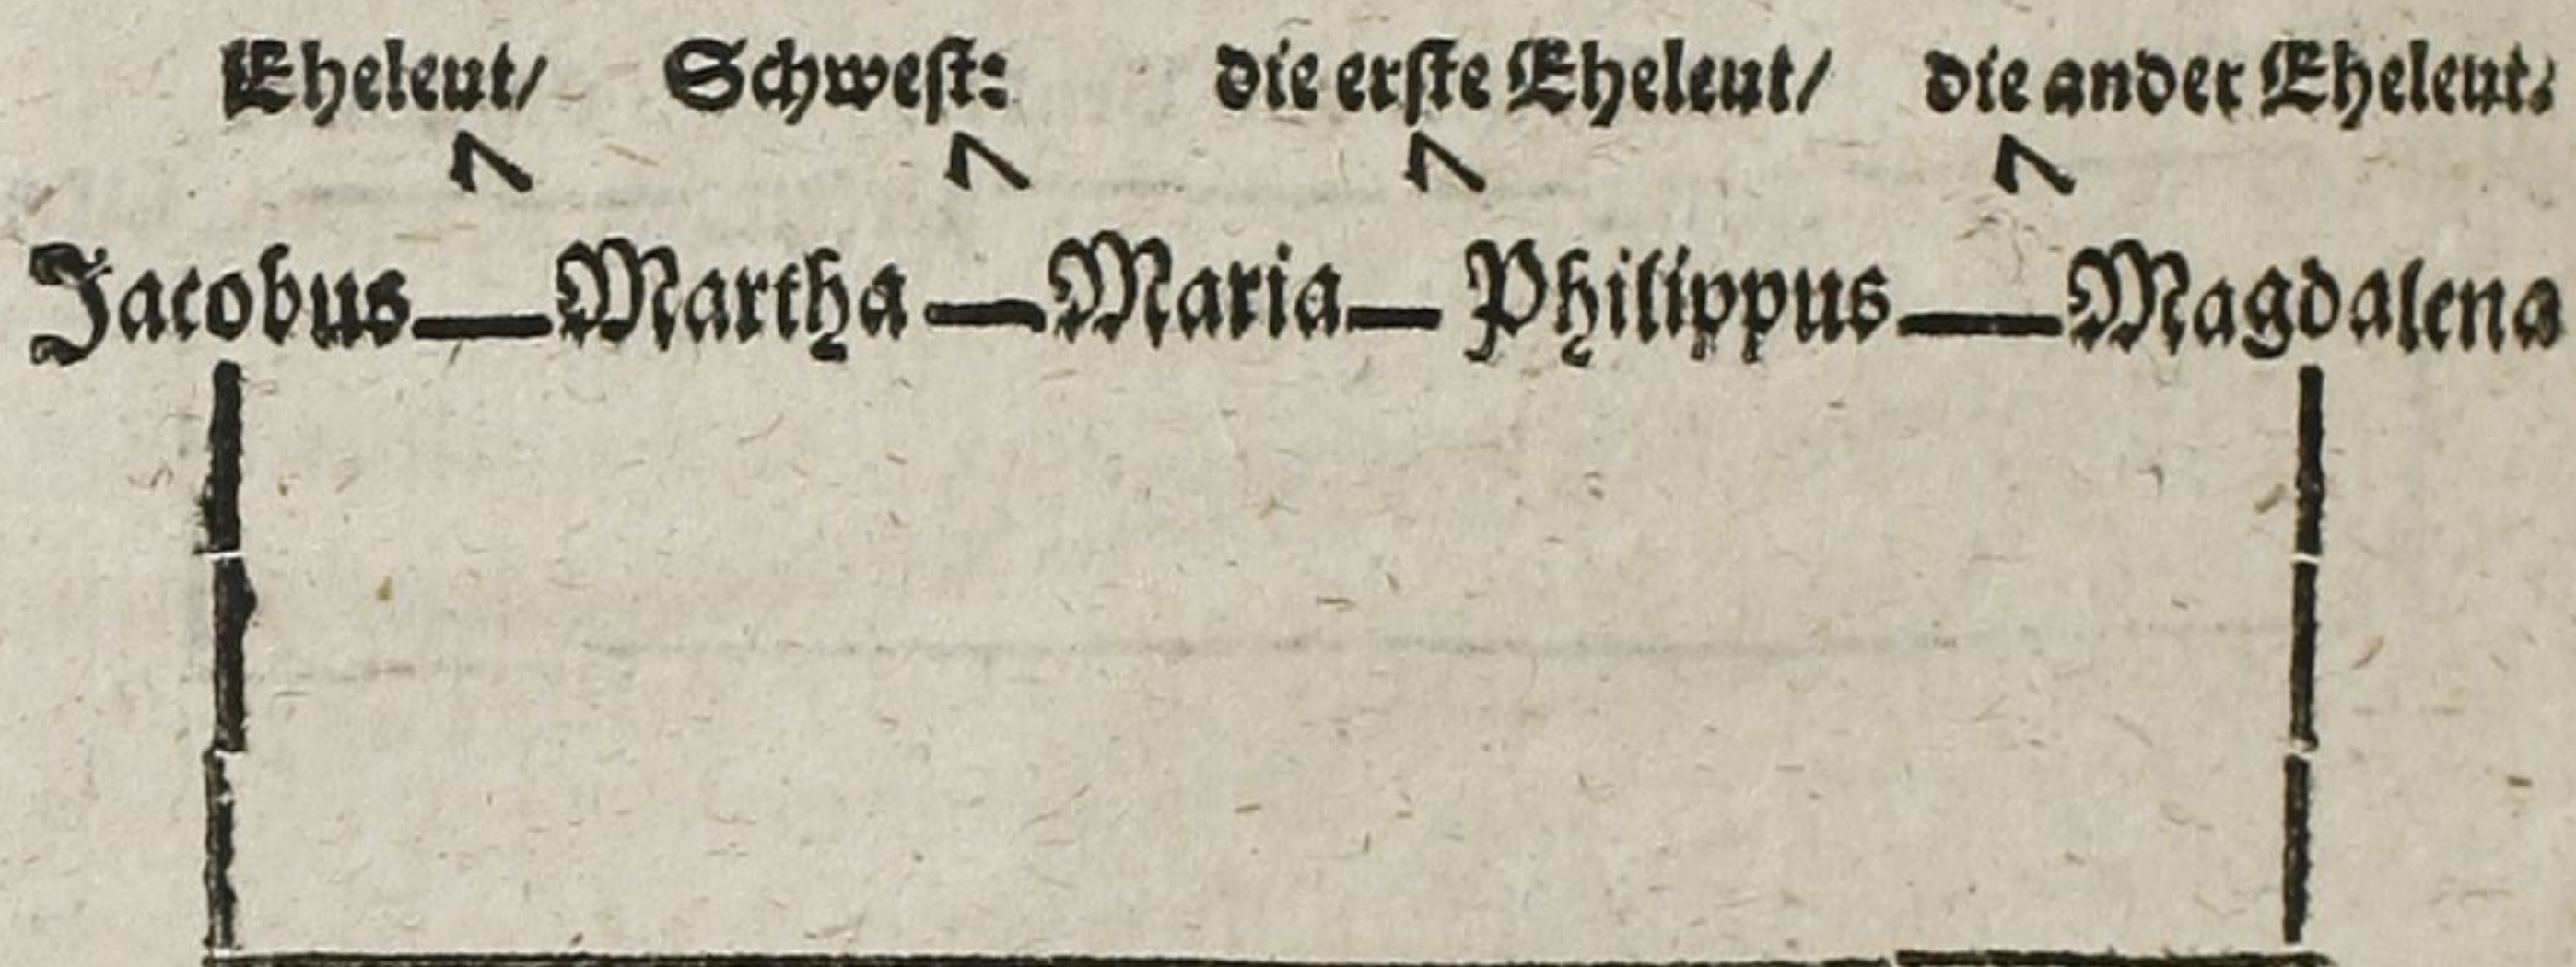 Eheleut/ Schwest: die erste Eheleut/ die ander Eheleut:
Jacobus—Martha—Maria—Philippus—Magdalena